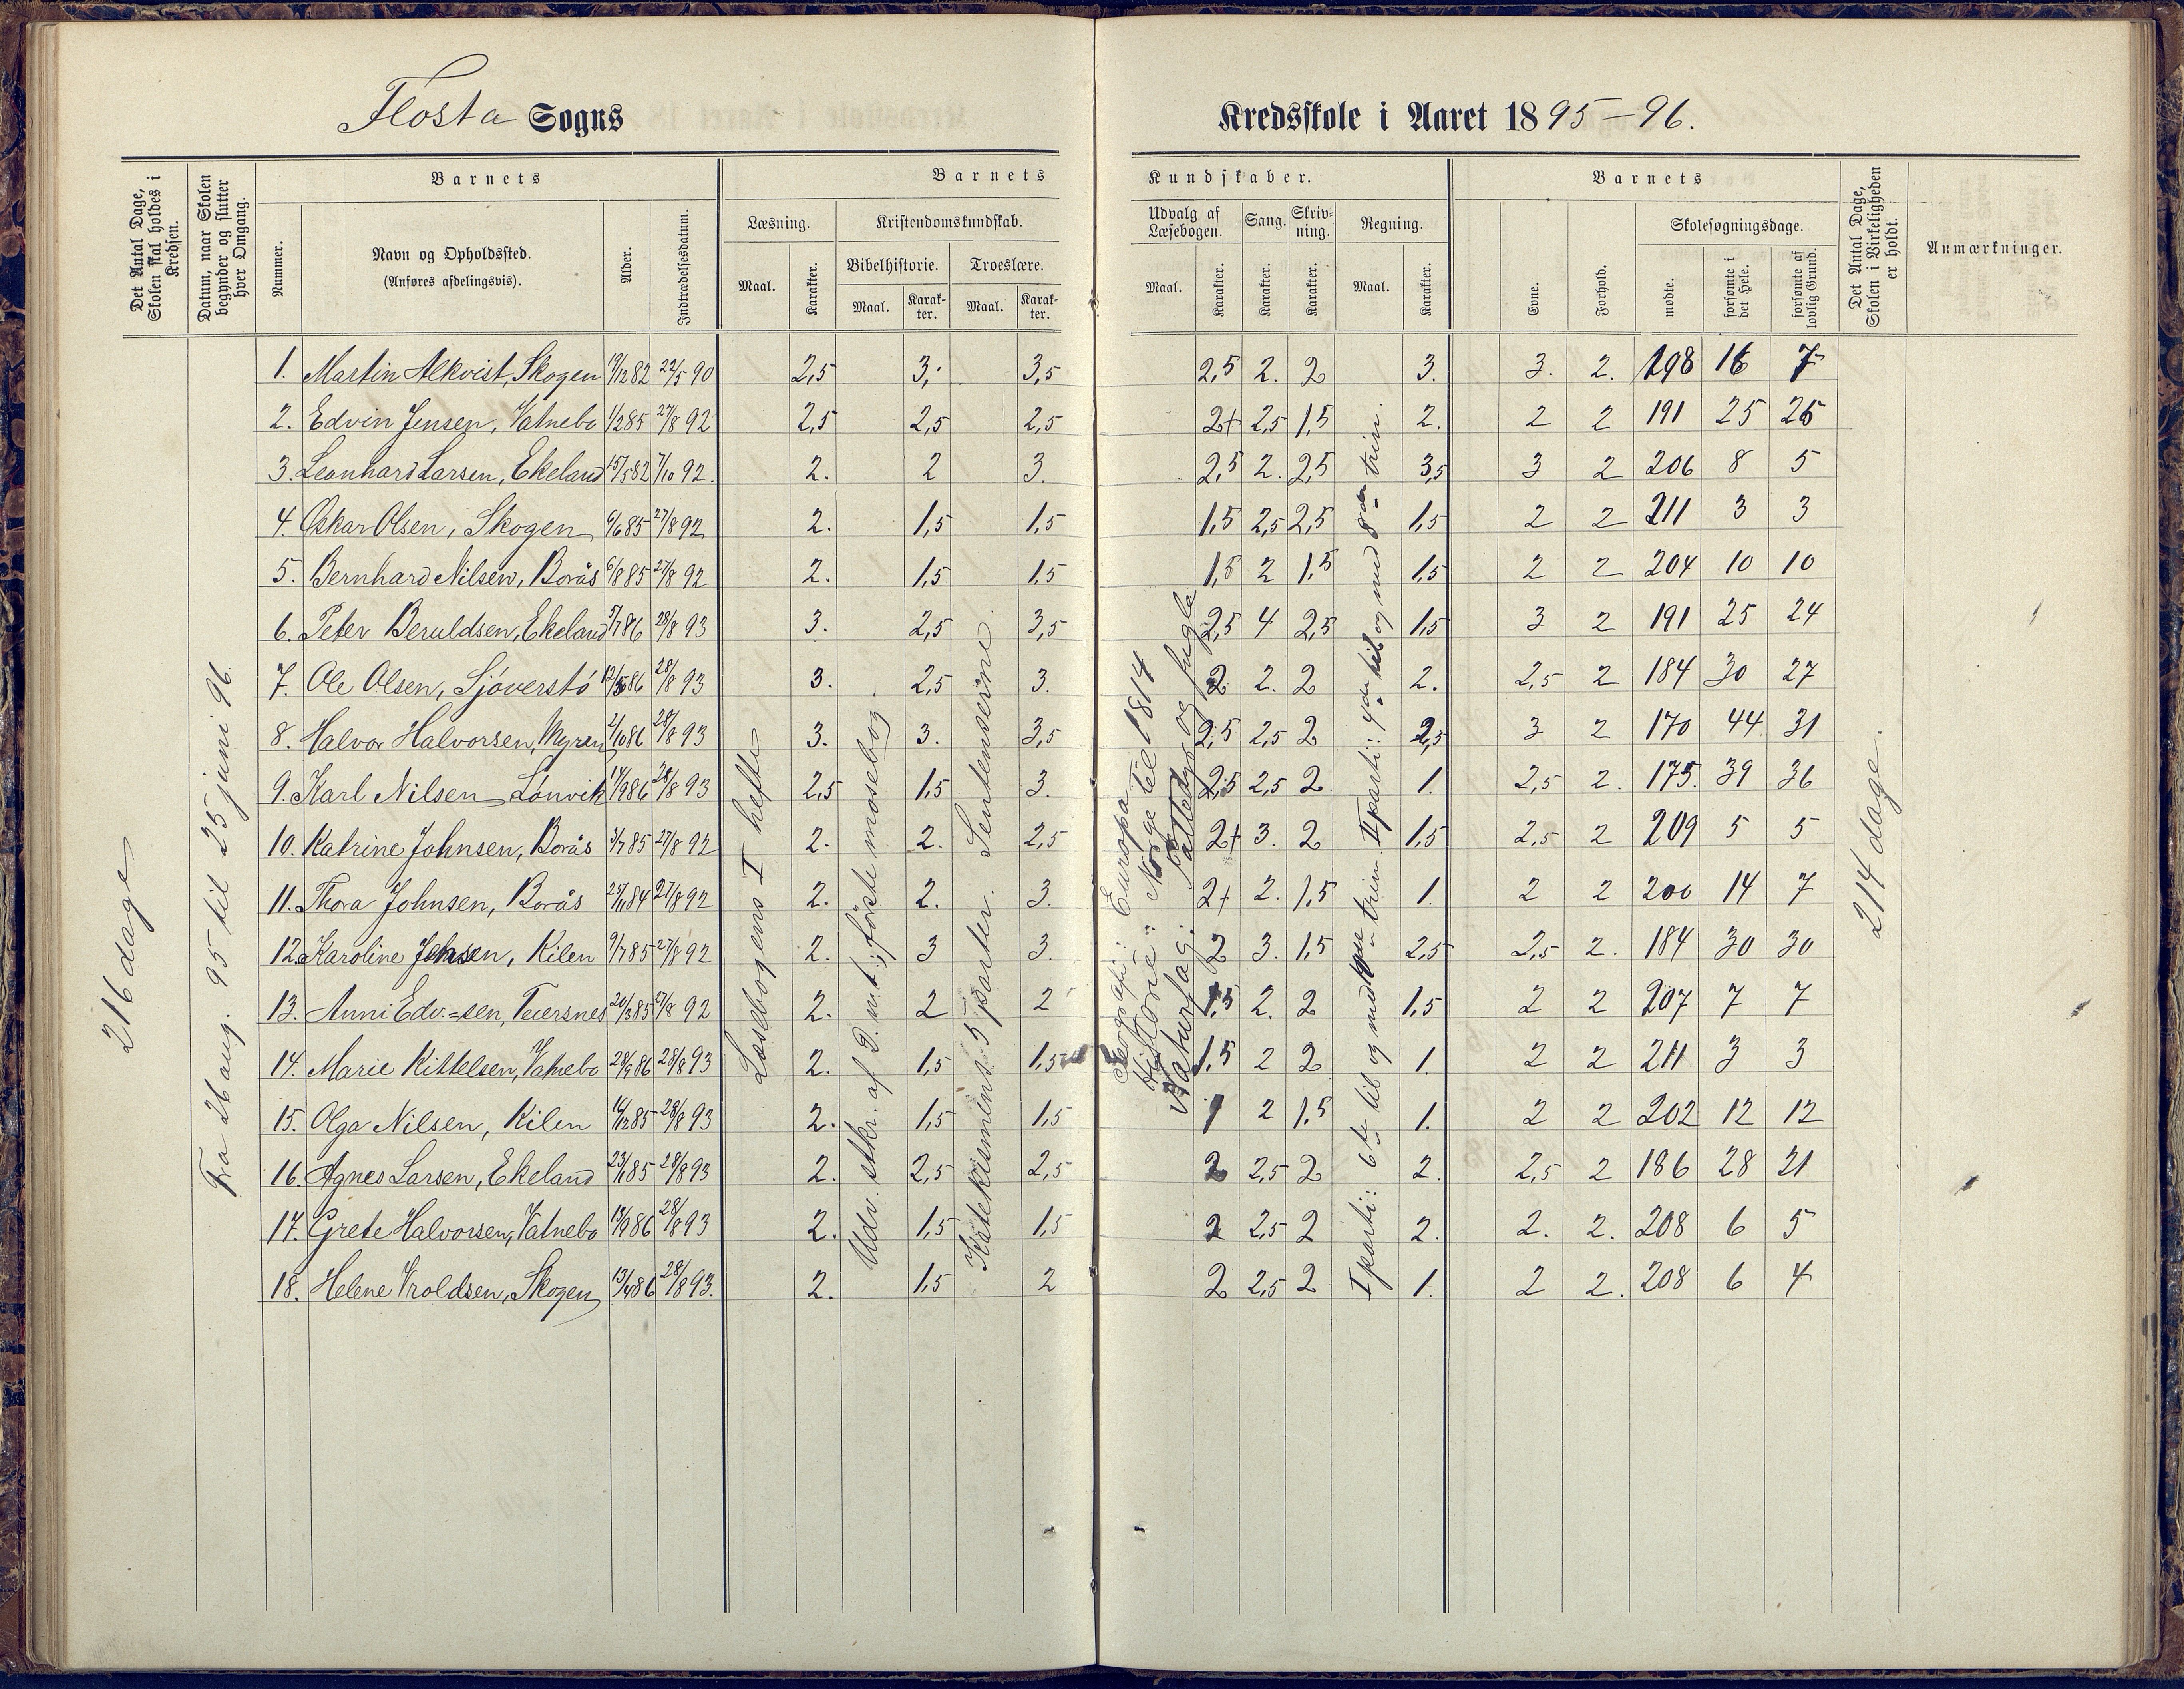 Flosta Sogns
Kredsskole i Aaret 1895-96.
Det Antal Dage, Skolen skal holdes i Kredsen.
Datum, naar Skolen begynder og slutter hver Omgang.
Barnets
Nummer.
Navn og Opholdssted.
(Anføres afdelingsvis).
Alder.
Indtrædelsesdatum.
Barnets
Læsning.
Maal.
Karakter.
Kristendomskundskab.
Bibelhistorie.
Maal.
Karak-
ter.
Troeslære.
Maal.
Karak-
ter.
Kundskaber.
Udvalg af
Læsebogen.
Maal.
Karakter.
Sang.
Karakter.
Skriv-
ning.
Karakter.
Regning.
Maal.
Karakter.
Barnets
Evne.
Forhold.
Skolesøgningsdage.
mødte.
forsømte i det Hele.
forsømte af lovlig Grund.
Det Antal Dage, Skolen i Virkeligheden er holdt.
Anmærkninger.
216 dage
Fra 26 aug. 95 til 25 juni 96.
Læsebogens I hefte
Udv. stkr. af G. m.t.; første mosebog
Katekismens 5 parter. Sentenserne.
Geografi: Europa
Historie: Norge til 1814
Naturfag: Pattedyr og fugle
I parti: 6te til og med trin II parti: 4de til og med 8de trin.
214 dage.
1. Martin Alkvist, Skogen 19/12 82 22/5 90 2,5 3, 3,5 2,5 2. 2 3. 3. 2. 198 16 7
2. Edvin Jensen, Vatnebo 1/2 85 27/8 92 2,5 2,5 2,5 2+ 2,5 1,5 2. 2 2 191 25 25
3. Leonhard Larsen, Ekeland 15/5 82 7/10 92. 2. 2 3. 2,5 2. 2,5 3,5 3 2 206 8 5
4. Oskar Olsen, Skogen 6/6 85 27/8 92 2. 1,5 1,5 1,5 2,5 2,5 1,5 2 2 211 3 3
5. Bernhard Nilsen, Borås 6/8 85 27/8 92 2. 1,5 1,5 1,5 2 1,5 1,5 2 2 204 10 10
6. Peter Beruldsen, Ekeland 5/7 86 28/8 93 3. 2,5 3,5 2,5 4 2,5 1,5 3 2 191 25 24
7. Ole Olsen, Sjøverstø 12/5 86 28/8 93 3. 2,5 3. 2 2. 2 2. 2,5 2 184 30 27
8. Halvor Halvorsen, Myren 2/10 86 28/8 93 3. 3. 3,5 2,5 2,5 2 2,5 3 2 170 44 31
9. Karl Nilsen Lønvik 14/9 86 28/8 93 2,5 1,5 3. 2,5 2,5 2 1. 2,5 2. 175. 39 36
10. Katrine Johnsen, Borås 3/7 85 27/8 92 2. 2. 2,5 2+ 3. 2 1,5 2,5 2 209 5 5
11. Thora Johnsen, Borås 25/11 84 27/8 92 2. 2. 3. 2+ 2. 1,5 1. 2 2 200 14 7
12. Karoline Jensen, Kilen 9/7 85 27/8 92 2. 3 3. 2 3. 1,5 2,5 2,5 2. 184 30 30
13. Anni Edv.=sen, Teiersnes 20/3 85 27/8 92 2. 2 2 1,5 2. 2 1,5 2 2 207 7 7
14. Marie Kittelsen, Vatnebo 28/9 86 28/8 93 2. 1,5 1,5 1,5 2 2 1. 2 2 211 3 3
15. Olga Nilsen, Kilen 16/12 85 28/8 93 2. 1,5 1,5 1 2 1,5 1. 2 2 202 12 12
16. Agnes Larsen, Ekeland 23/1 85 28/8 93 2. 2,5 2,5 2 2,5 2 2. 2,5 2 186 28 21
17. Grete Halvorsen, Vatnebo 28/8 93 2. 1,5 1,5 2 2,5 2 2. 2. 2. 208 6 5
18. Helene Vroldsen, Skogen 13/4 86 28/8 93. 2. 1,5 2 2 2,5 2 1. 2 2. 208 6 4